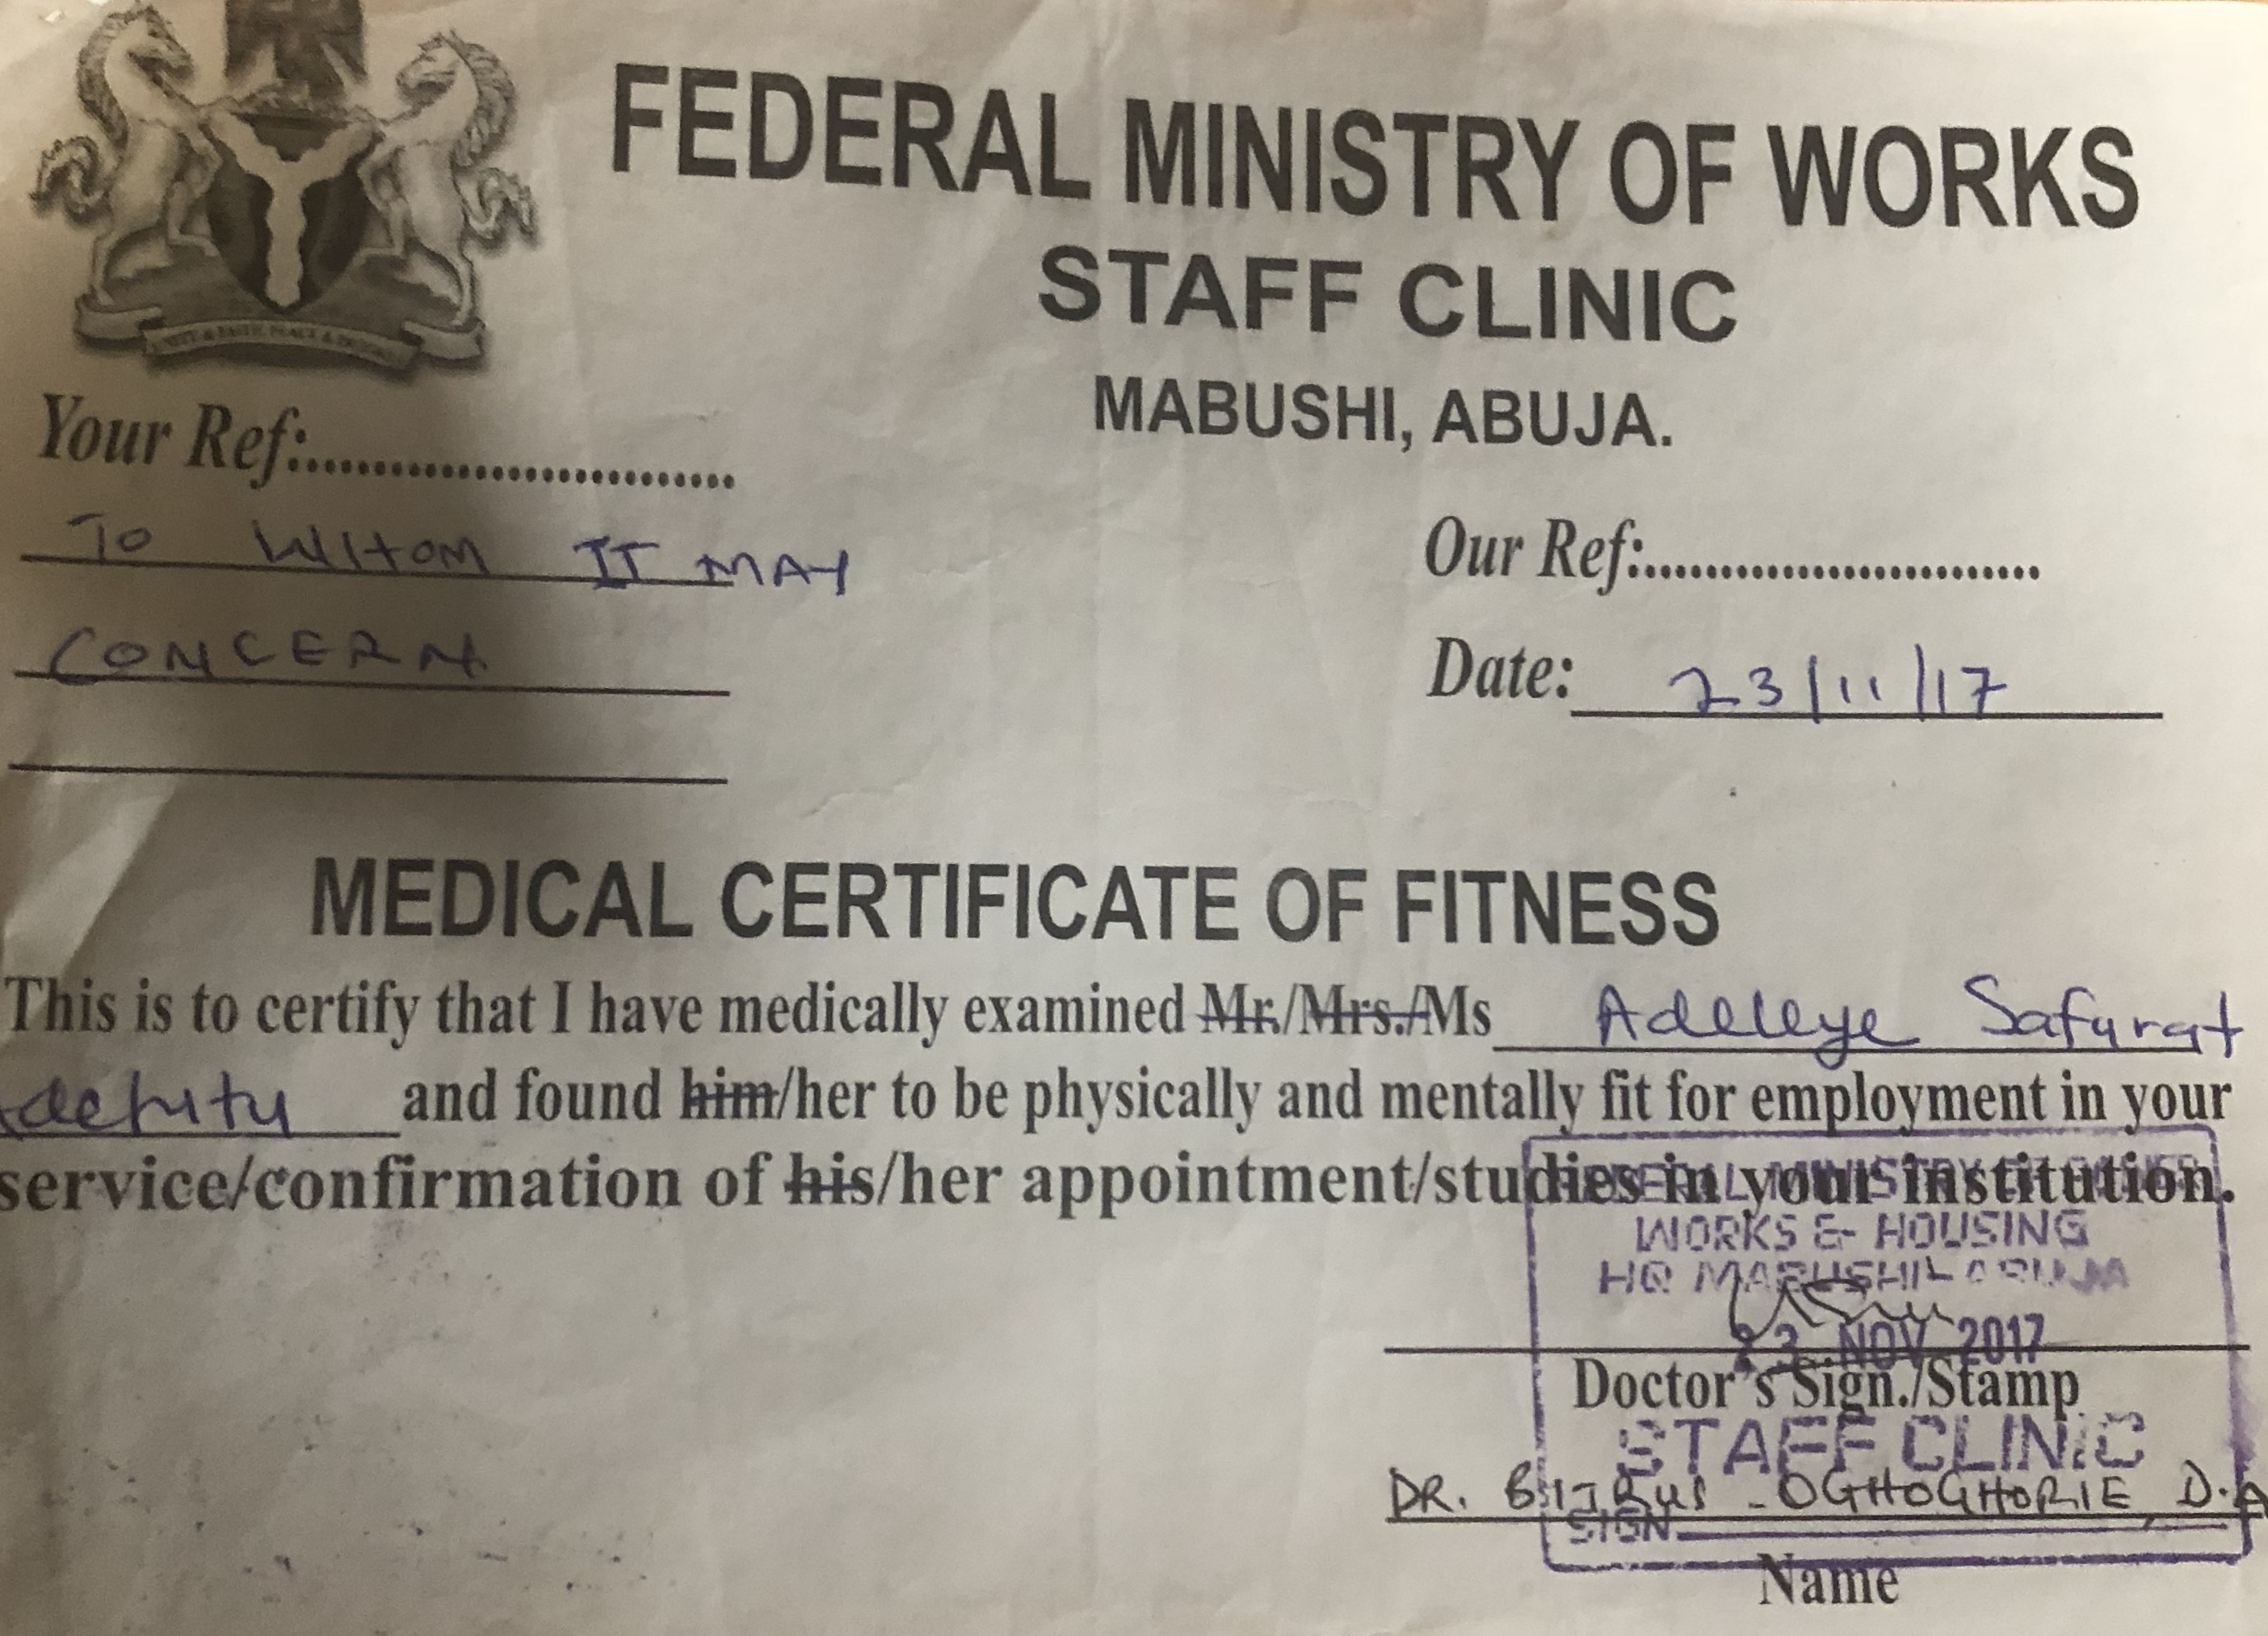 FEDERAL MINISTRY OF WORKS
STAFF CLINIC
MABUSHI, ABUJA.
Your Ref:...........................
TO WHOM IT MAY
CONCERN
Our Ref:...........................
Date: 23/11/17
MEDICAL CERTIFICATE OF FITNESS
This is to certify that I have medically examined Mr./Mrs./Ms Adeleye Safurat
and found him/her to be physically and mentally fit for employment in your
service/confirmation of his/her appointment/studies in your institution.
FEDERAL MINISTRY OF POWER
WORKS & HOUSING
HQ MABUSHI - ABUJA
23 NOV 2017
Doctor's Sign./Stamp
STAFF CLINIC
DR. OGHOGHORIE, D.
SIGN
Name